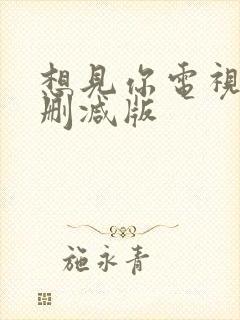 想見你電視
刪減版
施永青